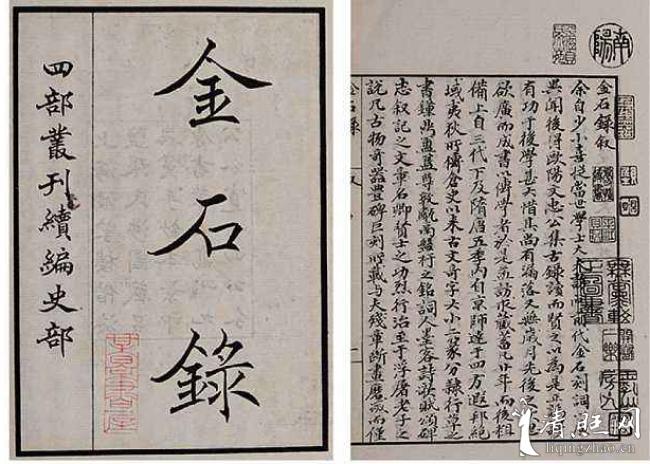 金石錄
四部叢刊續編史部
金石錄叙
余自少小喜從當世學士大夫訪問前代金石刻詞
異聞後得歐陽文忠公集古錄讀而賢之以為是正
有功于後學甚大惜其尚有漏落又無歲月先後之
欲廣而成書以傳學者於是益訪求藏蓄凡廿年而後粗
備上自三代下及隋唐五季內自京師達于四方遐邦絕
域夷狄所傳倉史以來古文奇字大小二篆分隸行草之
書鐘鼎簠簋尊敦甗鬲盤杅之銘詞人墨客詩歌賦頌碑
志叙記之文章名卿賢士之功烈行治至于浮屠老子之
說凡古物奇器豐碑巨刻所載與夫殘章斷畫磨滅而僅
金石錄 叙 一
清旺网
liqingzhao.cn